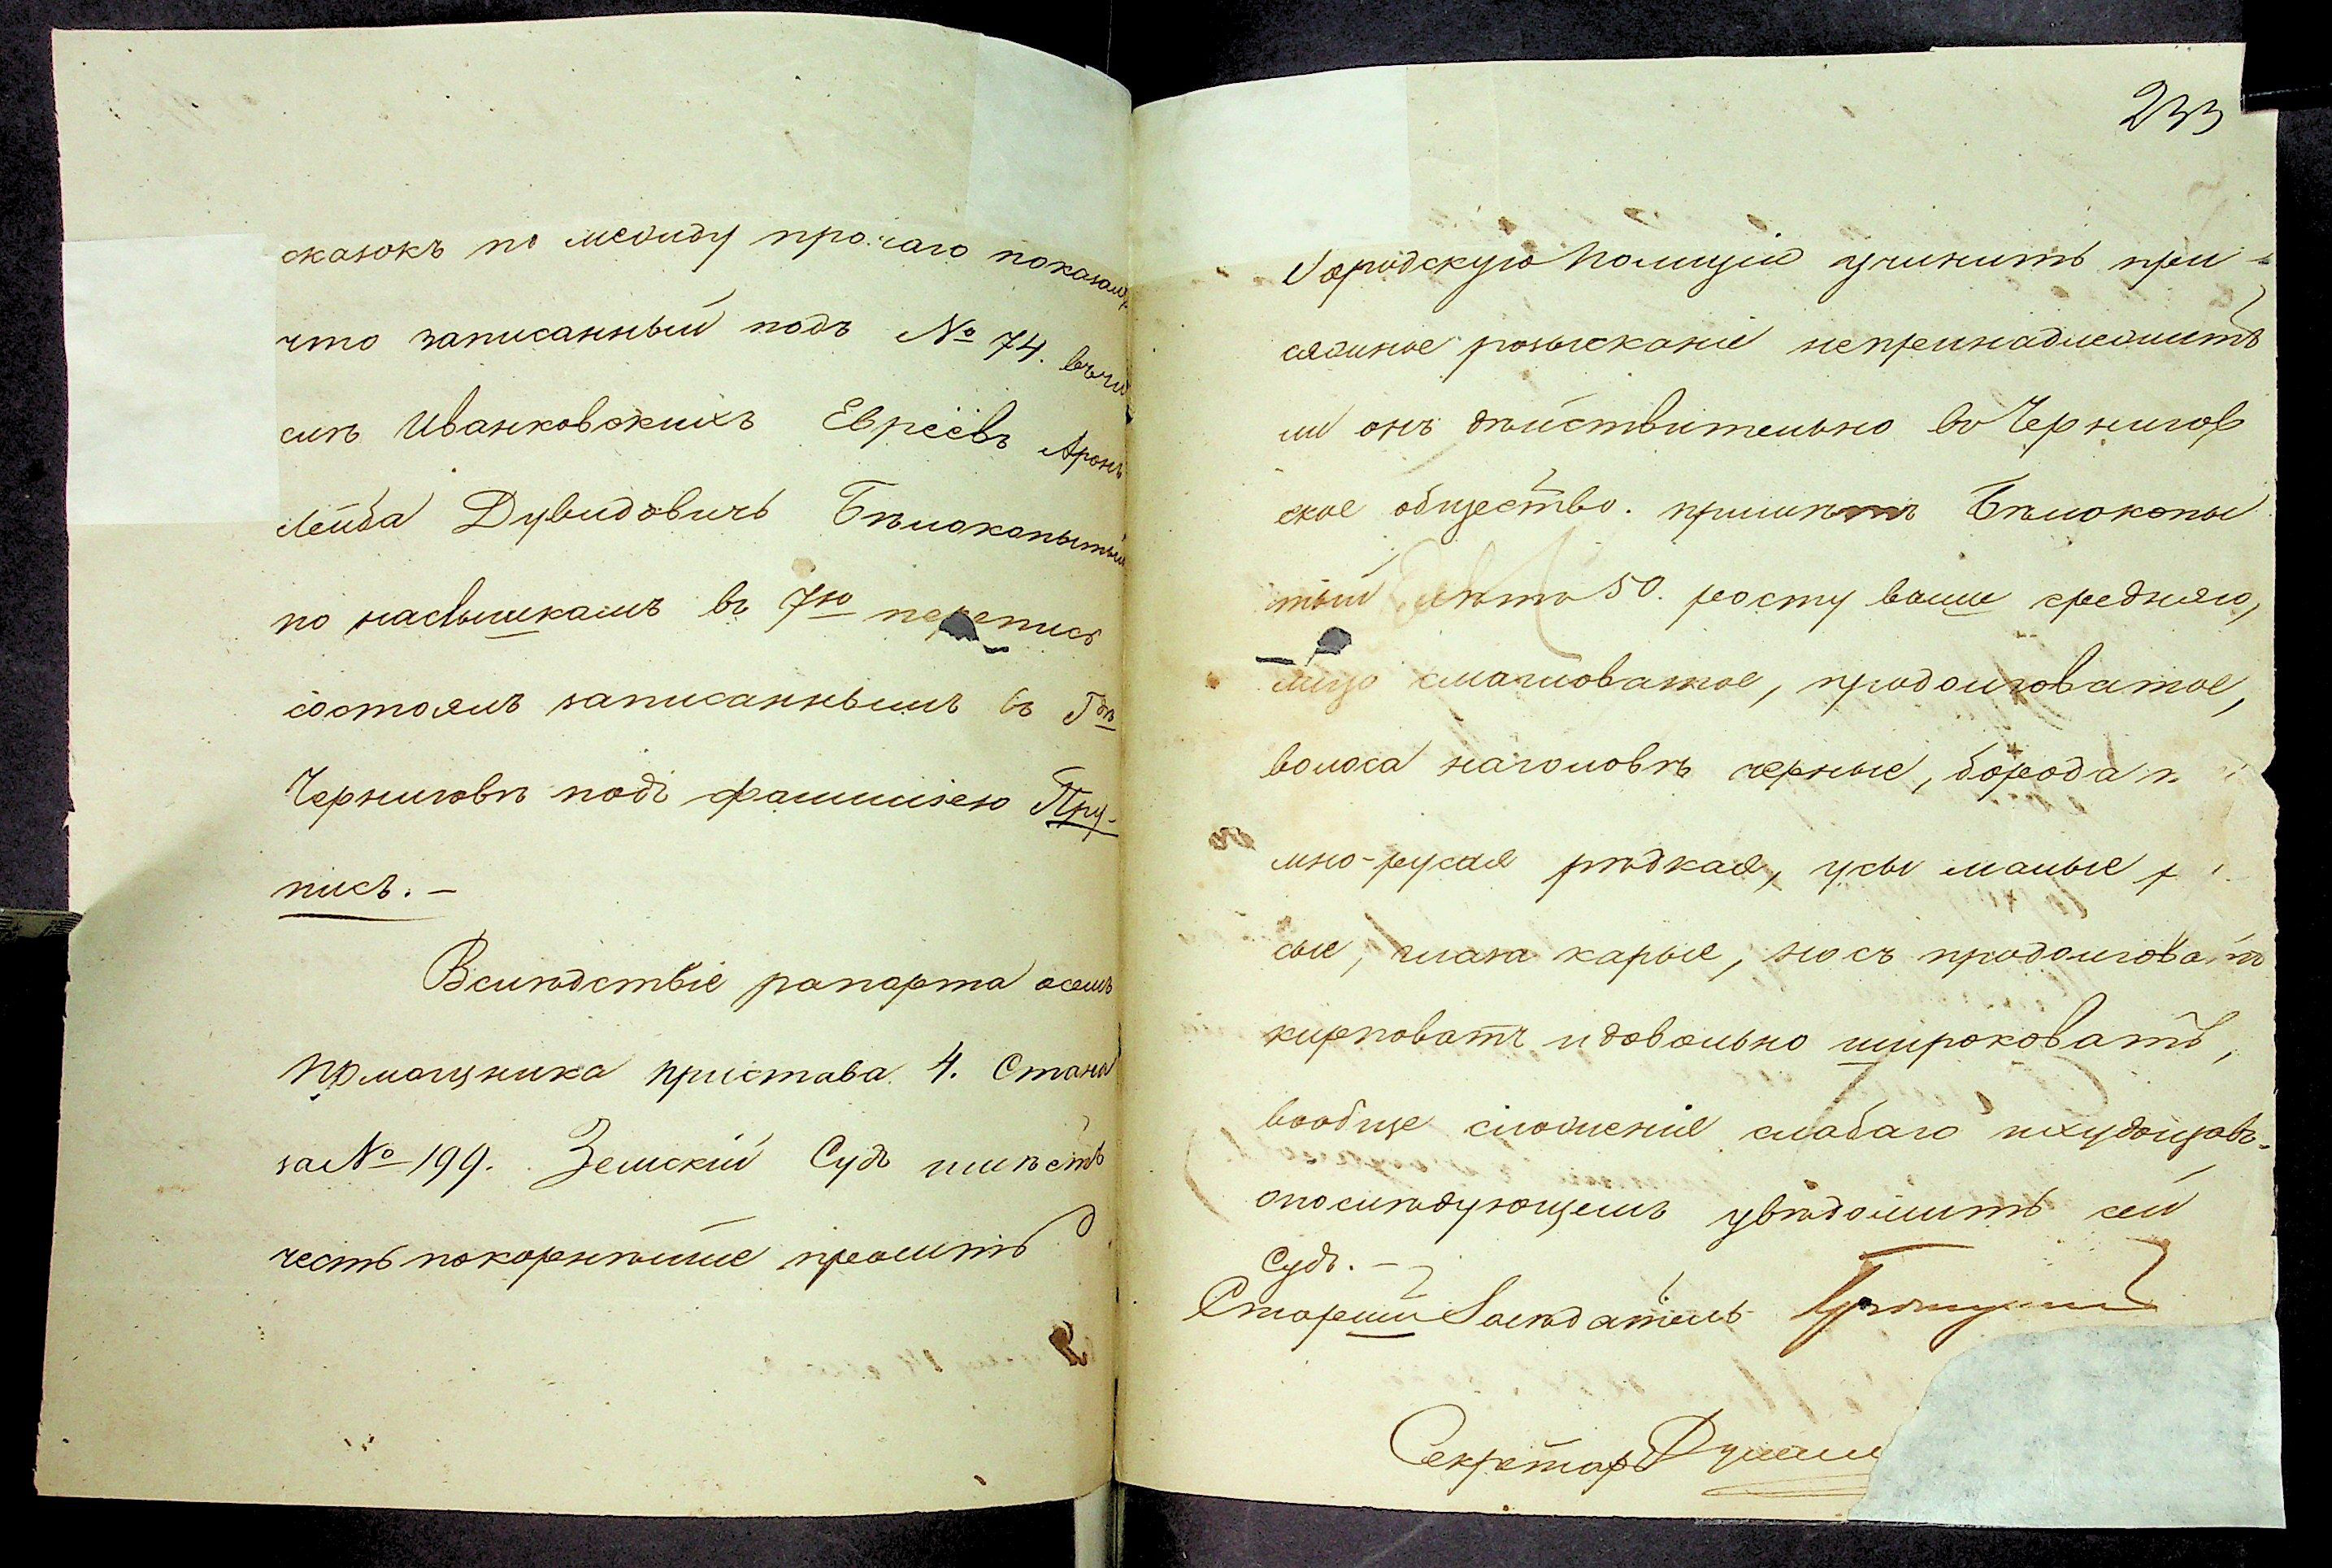 сказокъ по между прочаго показалъ
что записанный подъ № 74. въ чи
слѣ Иванковскихъ Евреевъ Аронъ
Лейба Дувидовичъ Бѣлокопытный
по наслышкамъ въ 7ю перепись
состоялъ записаннымъ въ Гдѣ
Черниговѣ подъ фамиліею Пру-
писъ. –
Вслѣдствіе рапорта о семъ
Помощника Пристава 4. Стана
за № 199. Земскій Судъ имѣетъ
честь покорнѣйше просить
233
Городскую Полицію учинить при-
сяжное розысканіе непренадлежитъ
ли онъ дѣйствительно въ Чернигов
ское общество. примѣтъ Бѣлокопы
тный лѣтъ 50. росту выше средняго,
лицо смагловатое, продолговатое,
волоса наголовѣ черные, борода
мно-русая рѣдкая, усы малые
сые, глаза карые, носъ продолговатъ
кирповатъ и довольно широковатъ,
вообще сложеніе слабаго ихудощавъ.
опослѣдующемъ увѣдомить сей
Судъ. –
Старшій Засѣдатель
Секретарь